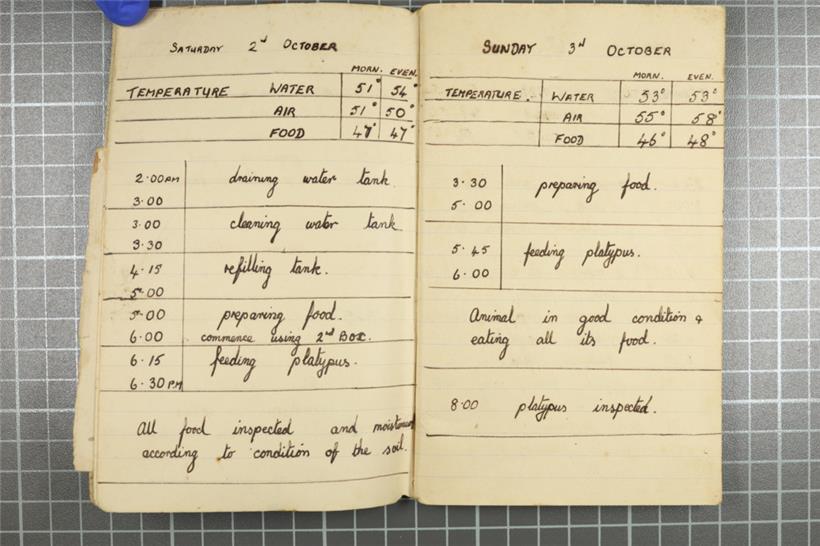 SATURDAY 2nd OCTOBER
MORN. EVEN.
TEMPERATURE WATER 51° 54°
AIR 51° 50°
FOOD 47° 47°
2.00AM draining water tank
3.00
3.00 cleaning water tank
3.30
4.15 refilling tank.
5.00
5.00 preparing food.
6.00 commence using 2nd BOX.
6.15 feeding platypus.
6.30PM
All food inspected and moistened
according to condition of the soil.
SUNDAY 3rd OCTOBER
MORN. EVEN.
TEMPERATURE. WATER 53° 53°
AIR 55° 58°
FOOD 46° 48°
3.30 preparing food.
5.00
5.45 feeding platypus.
6.00
Animal in good condition &
eating all its food.
8.00 platypus inspected.